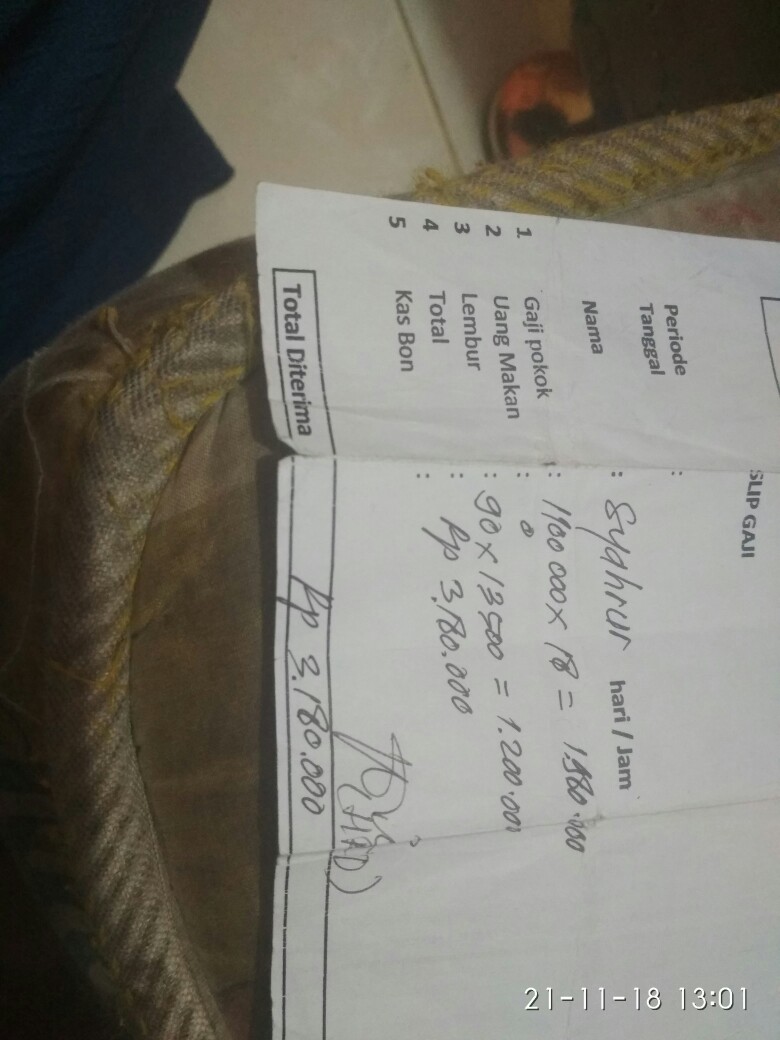 SLIP GAJI
Periode
Tanggal :
Nama : Syahrur hari / Jam
1 Gaji pokok : 1100000 x 18 = 1.980.000
2 Uang Makan : 0
3 Lembur : 90 x 13500 = 1.200.000
4 Total : Rp 3.180.000
5 Kas Bon :
Total Diterima Rp 3.180.000
21-11-18 13:01